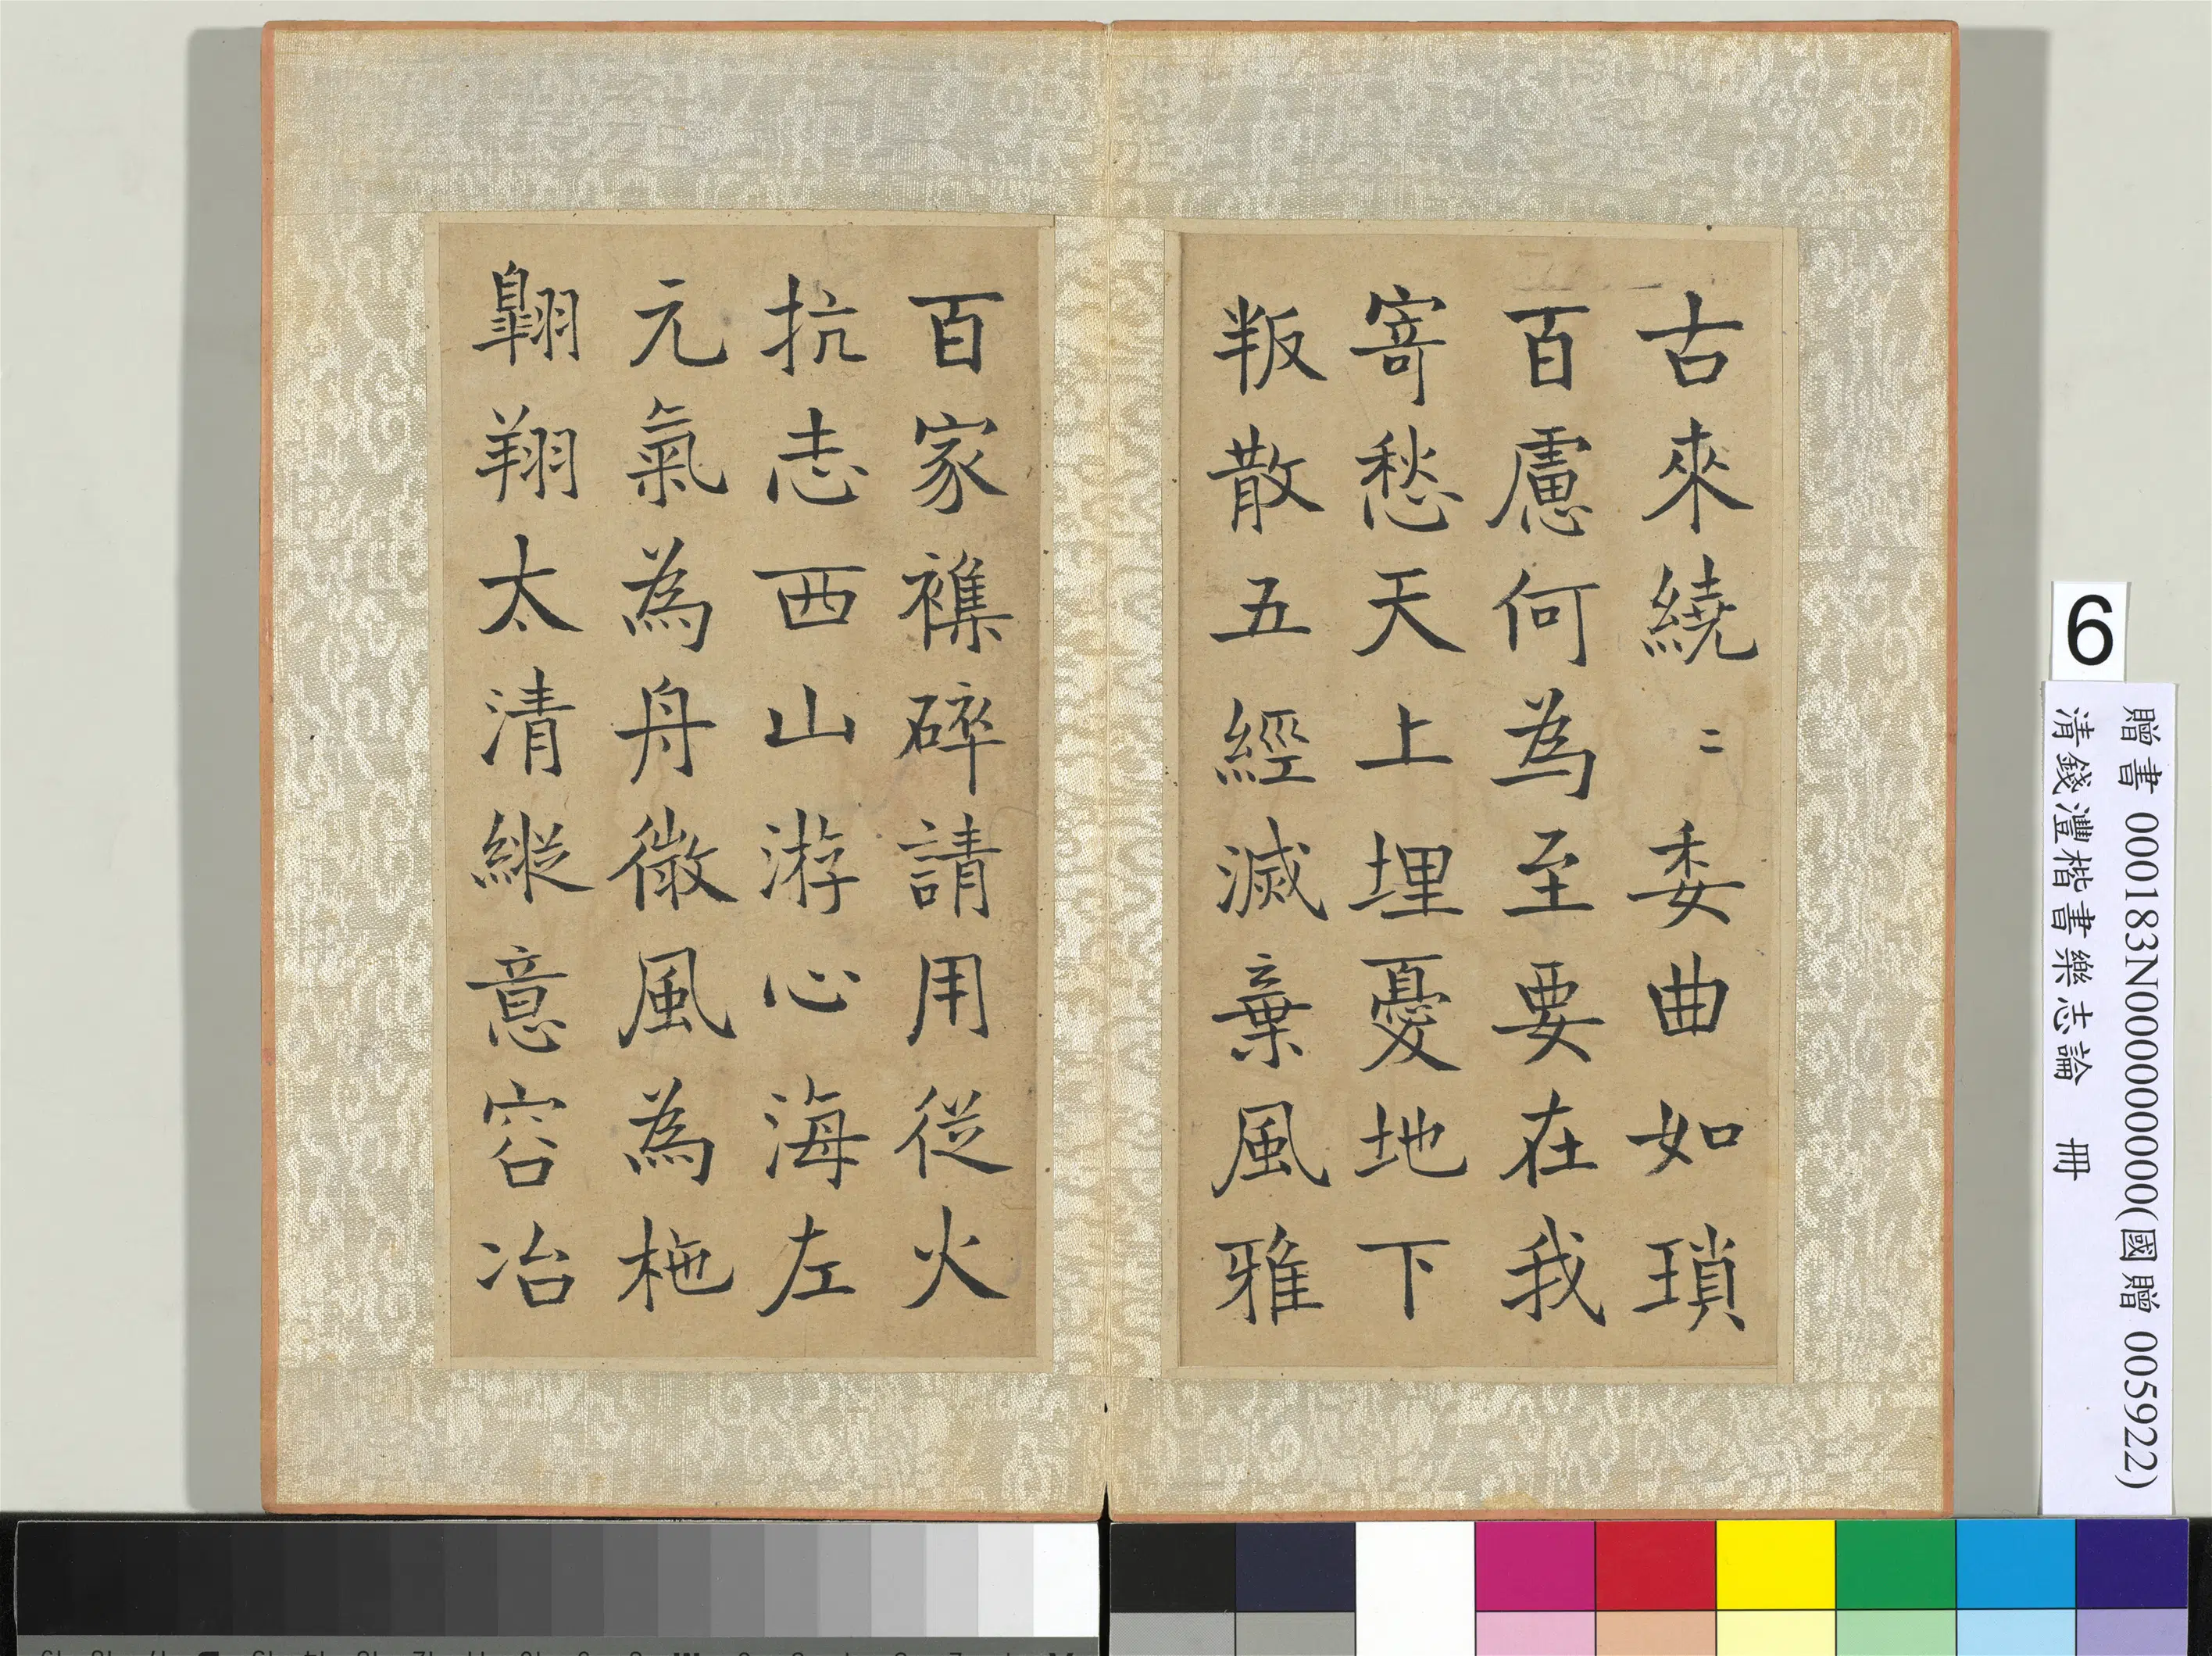 古來繞〻委曲如瑣
百慮何為至要在我
寄愁天上埋憂地下
叛散五經滅棄風雅
百家襍碎請用從火
抗志西山游心海左
元氣為舟微風為柂
翺翔太清縱意容冶
6
贈書 000183N000000000(國贈 005922)
清錢灃楷書樂志論 冊